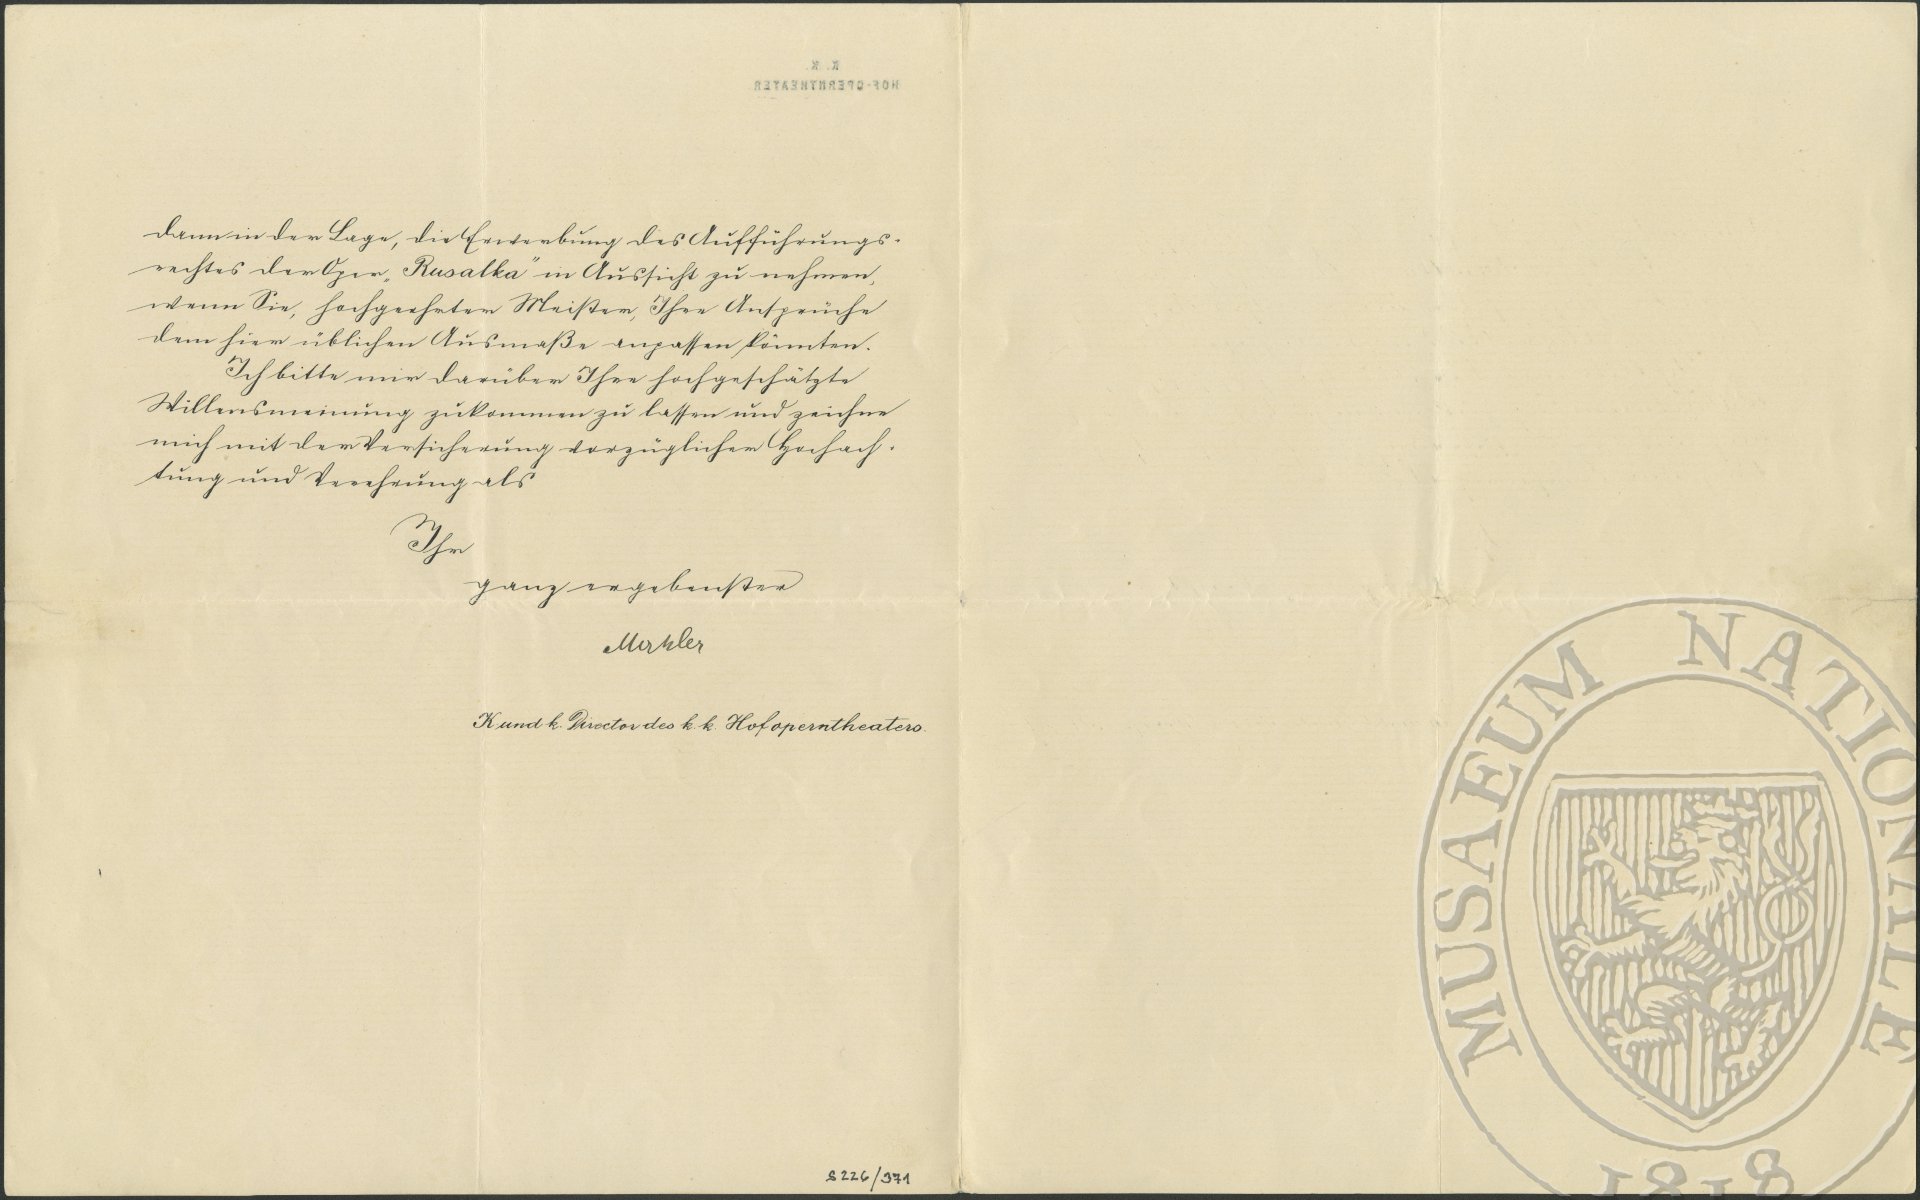 K. K.
HOF-OPERNTHEATER
dann in der Lage, die Erwerbung des Aufführungs-
rechtes der Oper „Rusalka" in Aussicht zu nehmen,
wenn Sie, hochgeehrter Meister, Ihre Ansprüche
dem hier üblichen Ausmaße anpassen könnten.
Ich bitte mir darüber Ihre hochgeschätzte
Willensmeinung zukommen zu lassen und zeichne
mich mit der Versicherung vorzüglicher Hochach-
tung und Verehrung als
Ihr
ganz ergebenster
Mahler
K und k. Director des k. k. Hofoperntheaters.
S 226/371
MUSAEUM NATIONALE
1818